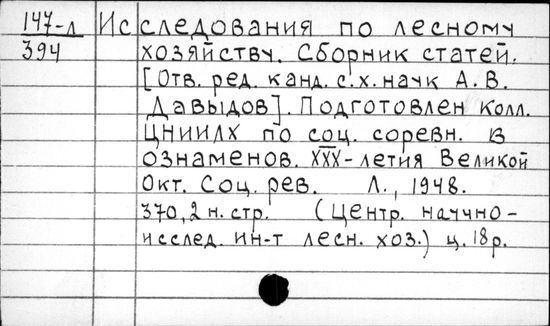 147-л Исследования по лесному
394 хозяйству. Сборник статей.
[Отв. ред. канд. с.х. наук А. В.
Давыдов]. Подготовлен колл.
ЦНИИЛХ по соц. соревн. в
ознаменов. XXX-летия Великой
Окт. Соц. рев. Л., 1948.
370,2 н. стр. (Центр. научно-
исслед. ин-т лесн. хоз.) ц. 18 р.